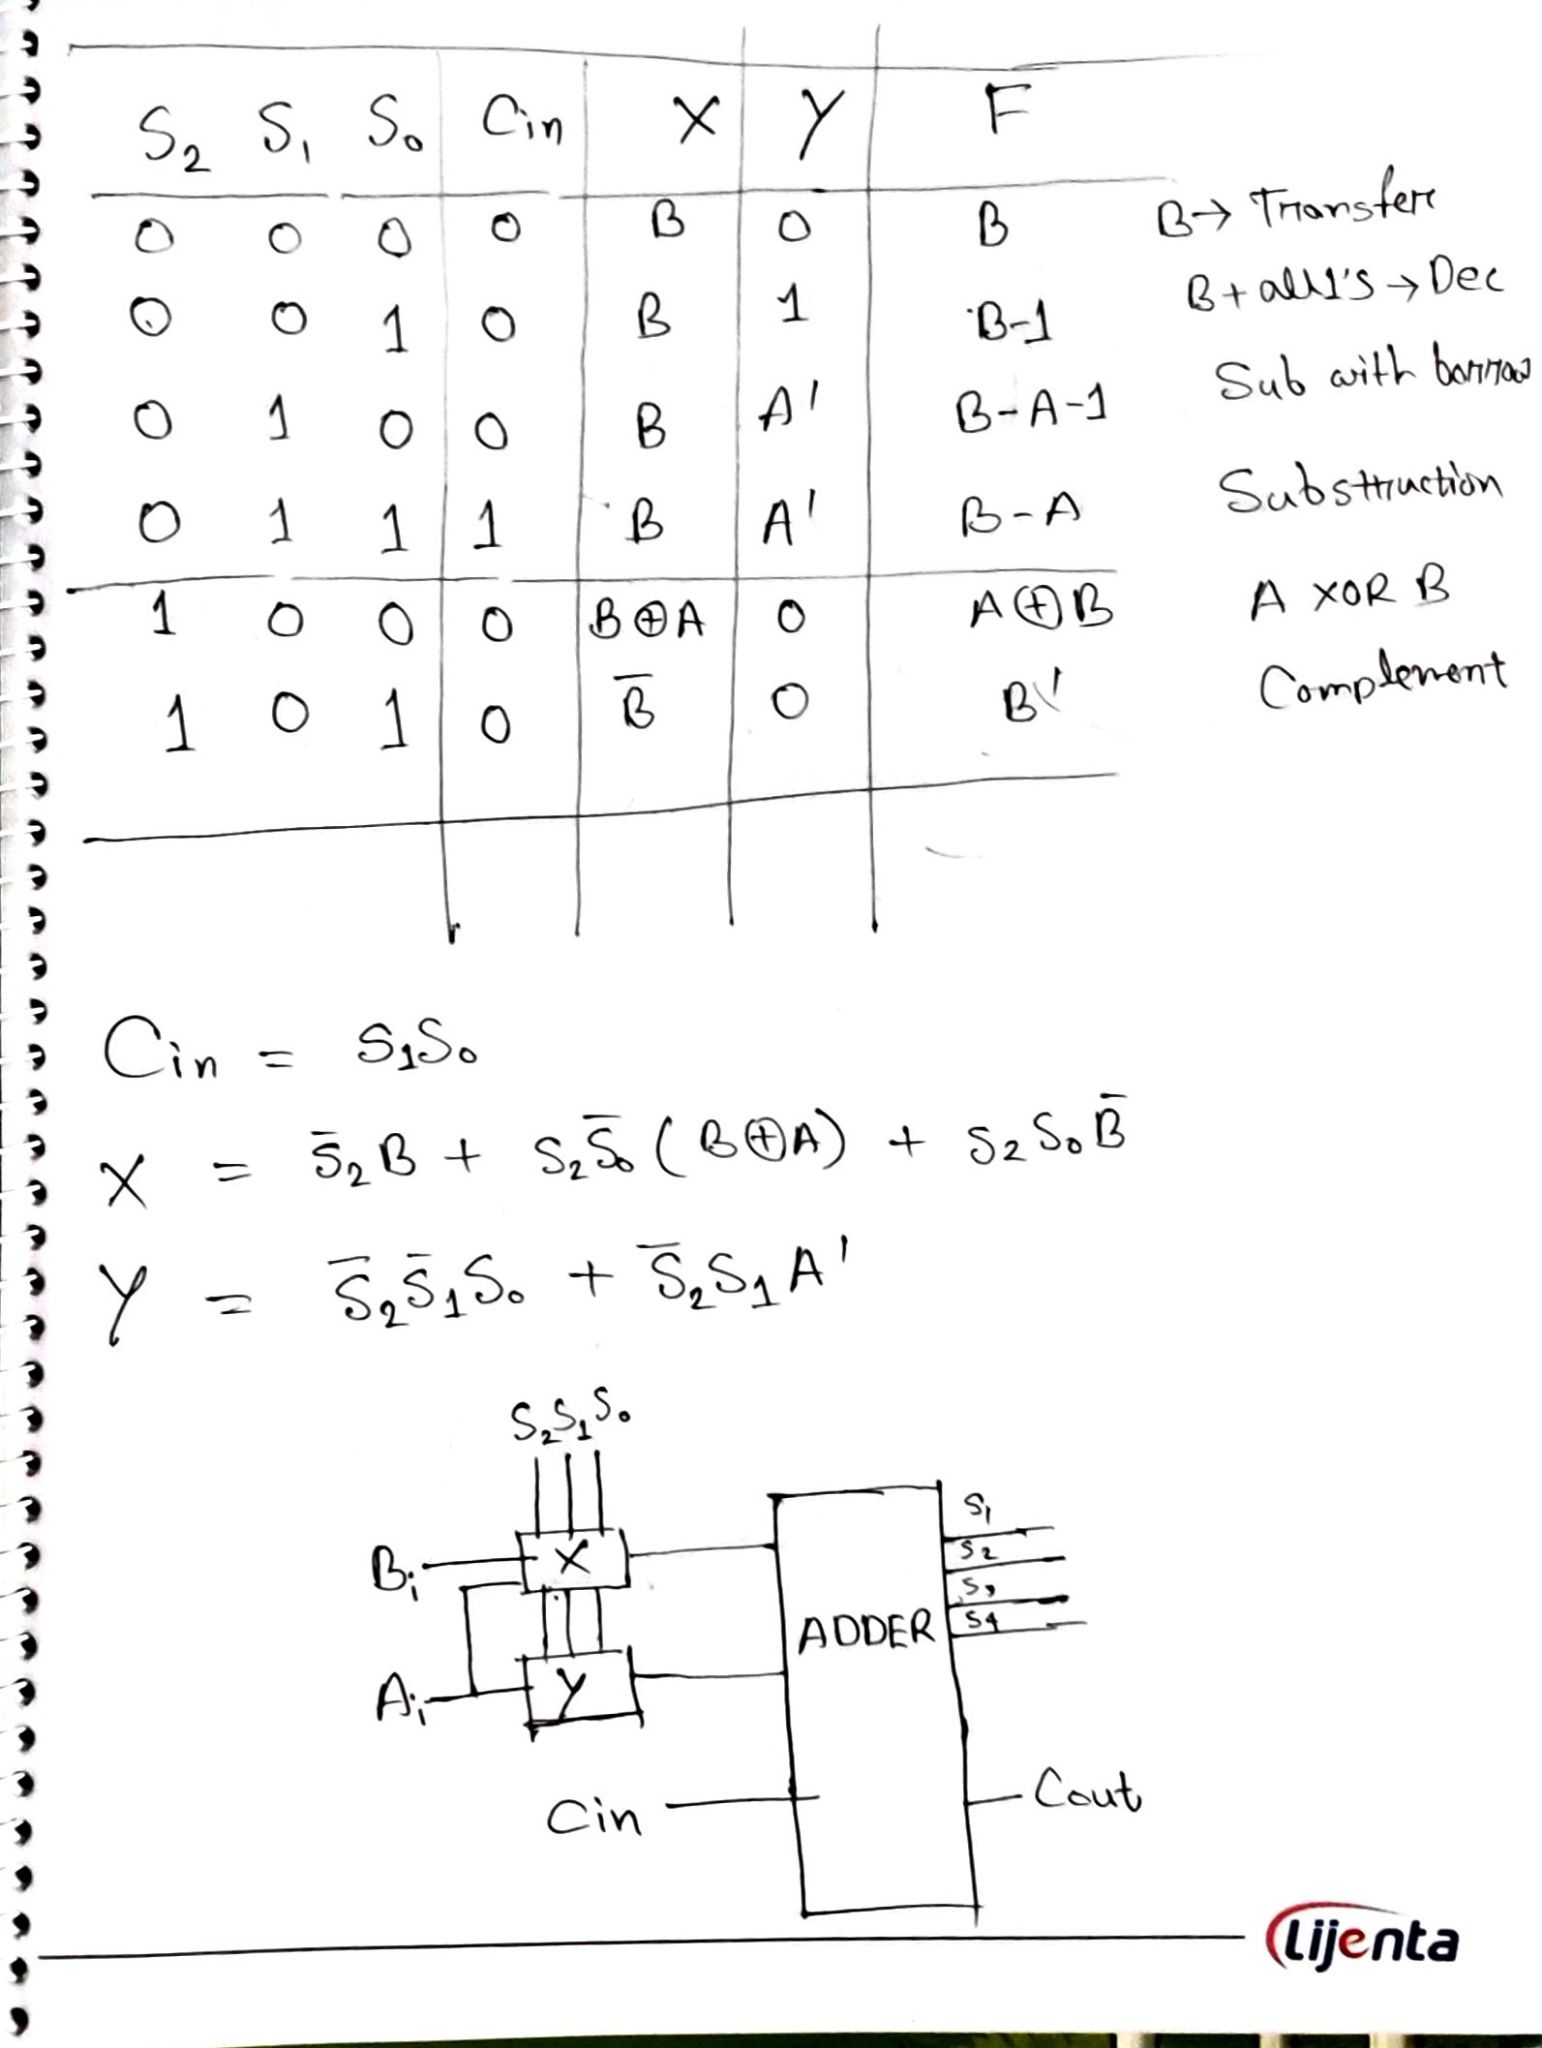 S₂ S₁ S₀ Cin X Y F
0 0 0 0 B 0 B B→ Transfer
0 0 1 0 B 1 B-1 B+all1's→Dec
0 1 0 0 B A' B-A-1 Sub with borrow
0 1 1 1 B A' B-A Substruction
1 0 0 0 B⊕A 0 A⊕B A XOR B
1 0 1 0 B̅ 0 B' Complement
Cin = S₁S₀
X = S̅₂B + S₂S̅₀(B⊕A) + S₂S₀B̅
Y = S̅₂S̅₁S₀ + S̅₂S₁A'
S₂S₁S₀
S₁
Bᵢ X S₂
S₃
ADDER S₄
Aᵢ Y
Cin Cout
Lijenta